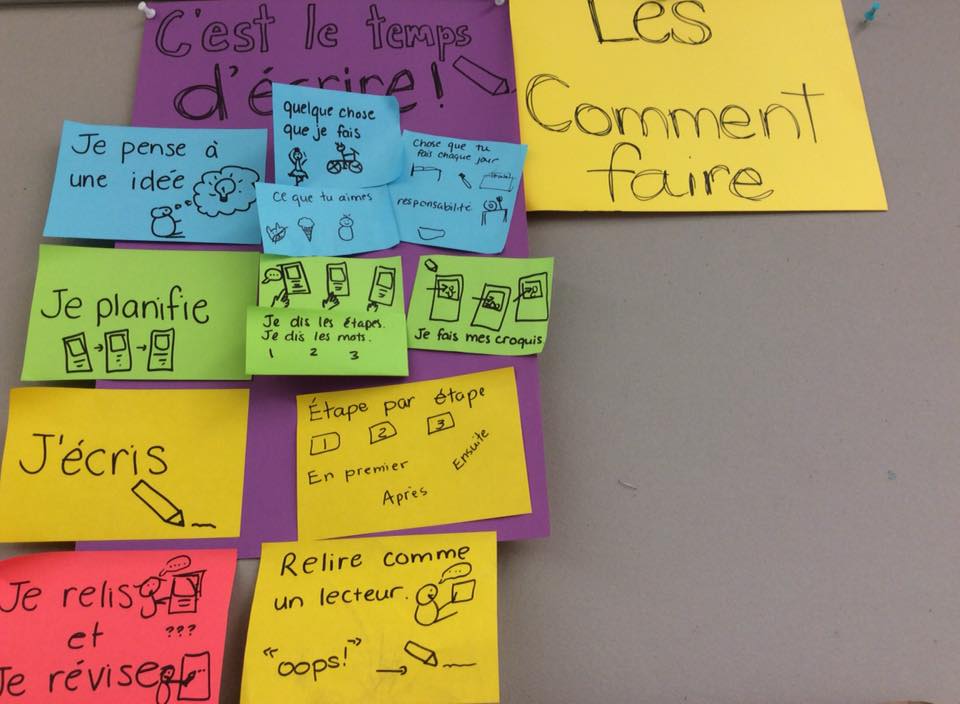 C'est le temps
d'écrire!
Les
Comment
faire
Je pense à
une idée
quelque chose
que je fais
chose que tu
fais chaque jour
Ce que tu aimes
responsabilité
Je planifie
Je dis les étapes.
Je dis les mots.
1 2 3
Je fais mes croquis
J'écris
Étape par étape
1 2 3
En premier
Ensuite
Après
Je relis
???
et
Je révise
Relire comme
un lecteur.
"oops!"